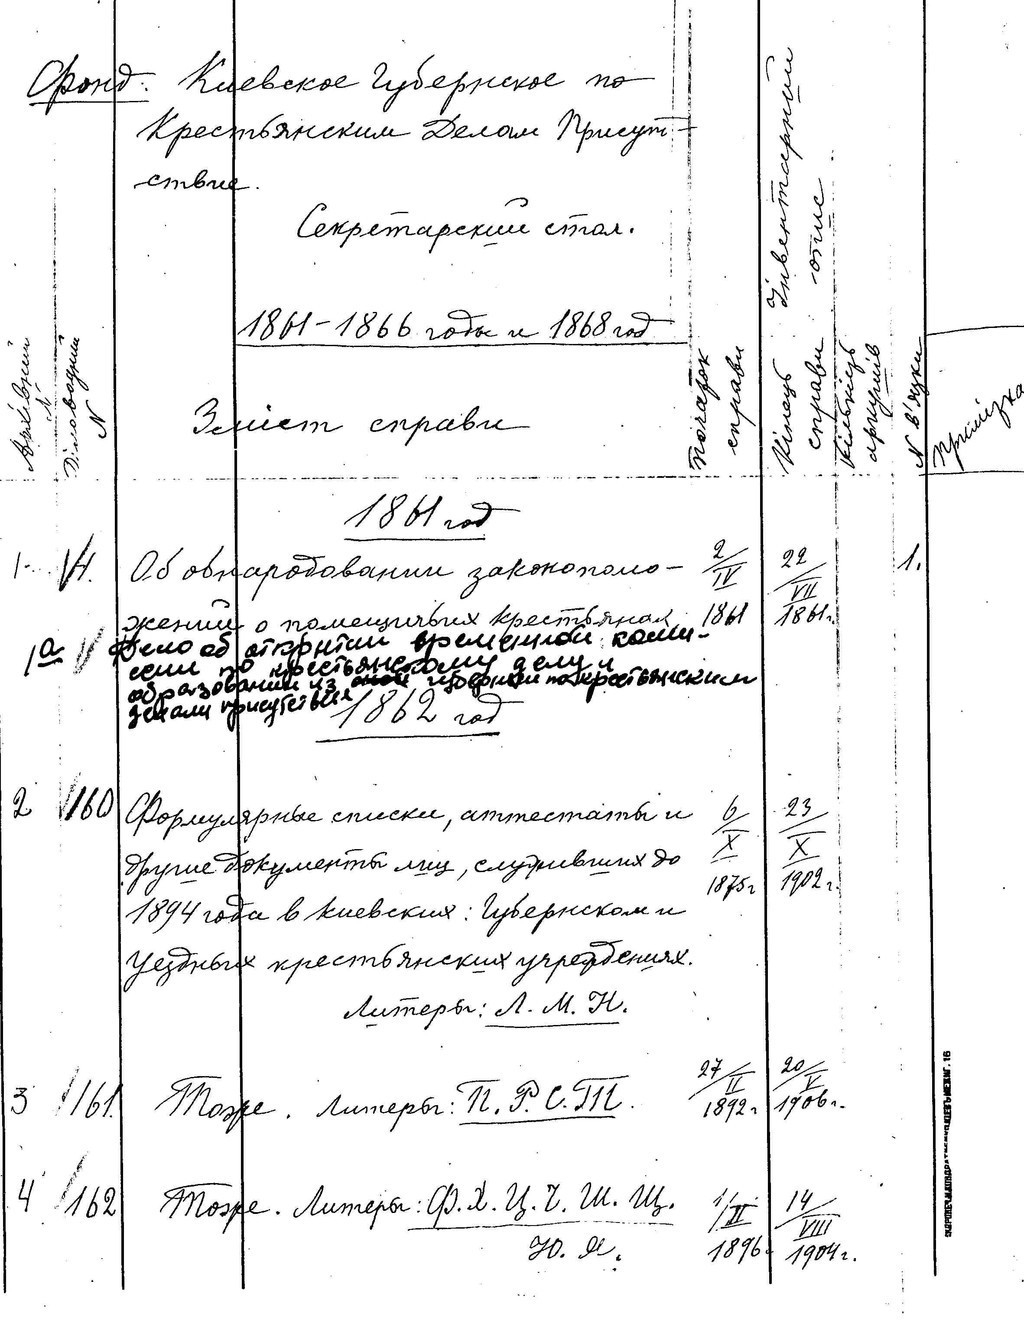 Фонд. Киевское Губернское по
Крестьянским Делам Присут-
ствие.
Секретарский стол.
Інвентарний опис
1861-1866 годы и 1868 год
Архівний №
Діловодний N
Зміст справи
Початок справи
Кінець справи
Кількість аркушів
N в'язки
Примітка
1861 год
1. 1. Об обнародовании законополо- 2/IV 22/VII 1.
жений о помещичьих крестьянах 1861 1861г.
1а Дело об открытии временной комис-
сии по крестьянскому делу и
образовании из оной губернии по крестьянским
делам присутствия
1862 год
2 160 Формулярные списки, аттестаты и 6/X 23/X
другие документы лиц, служивших до 1875г 1902г.
1894 года в Киевских: Губернском и
Уездных крестьянских учреждениях.
Литеры: Л. М. Н.
3 161. Тоже. Литеры: П. Р. С. Т. 27/II 1892г. 20/V 1906г.
4 162 Тоже. Литеры: Ф. Х. Ц. Ч. Ш. Щ. 1/II 14/VIII
Ю. Я. 1896г. 1904г.